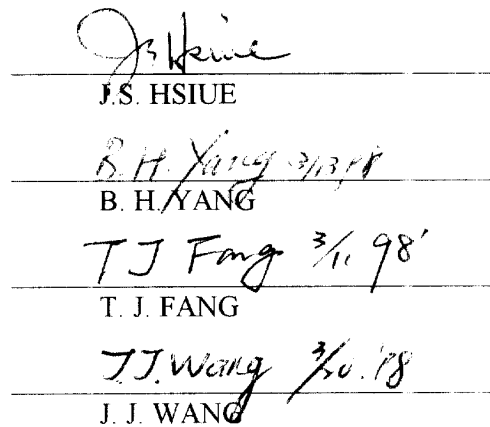 JS Hsiue
J.S. HSIUE
B. H. Yang 3/13/98
B. H. YANG
T J Fang 3/11 98'
T. J. FANG
J.J. Wang 3/20.'98
J. J. WANG